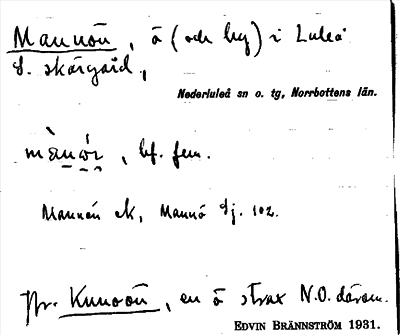 Mannön, ö (och by) i Luleå
s. skärgård,
Nederluleå sn o. tg, Norrbottens län.
, bf. fem.
Mannön ek, Mannö Sj. 102.
Jfr. Knusön, en ö strax N.O. därom.
EDVIN BRÄNNSTRÖM 1931.